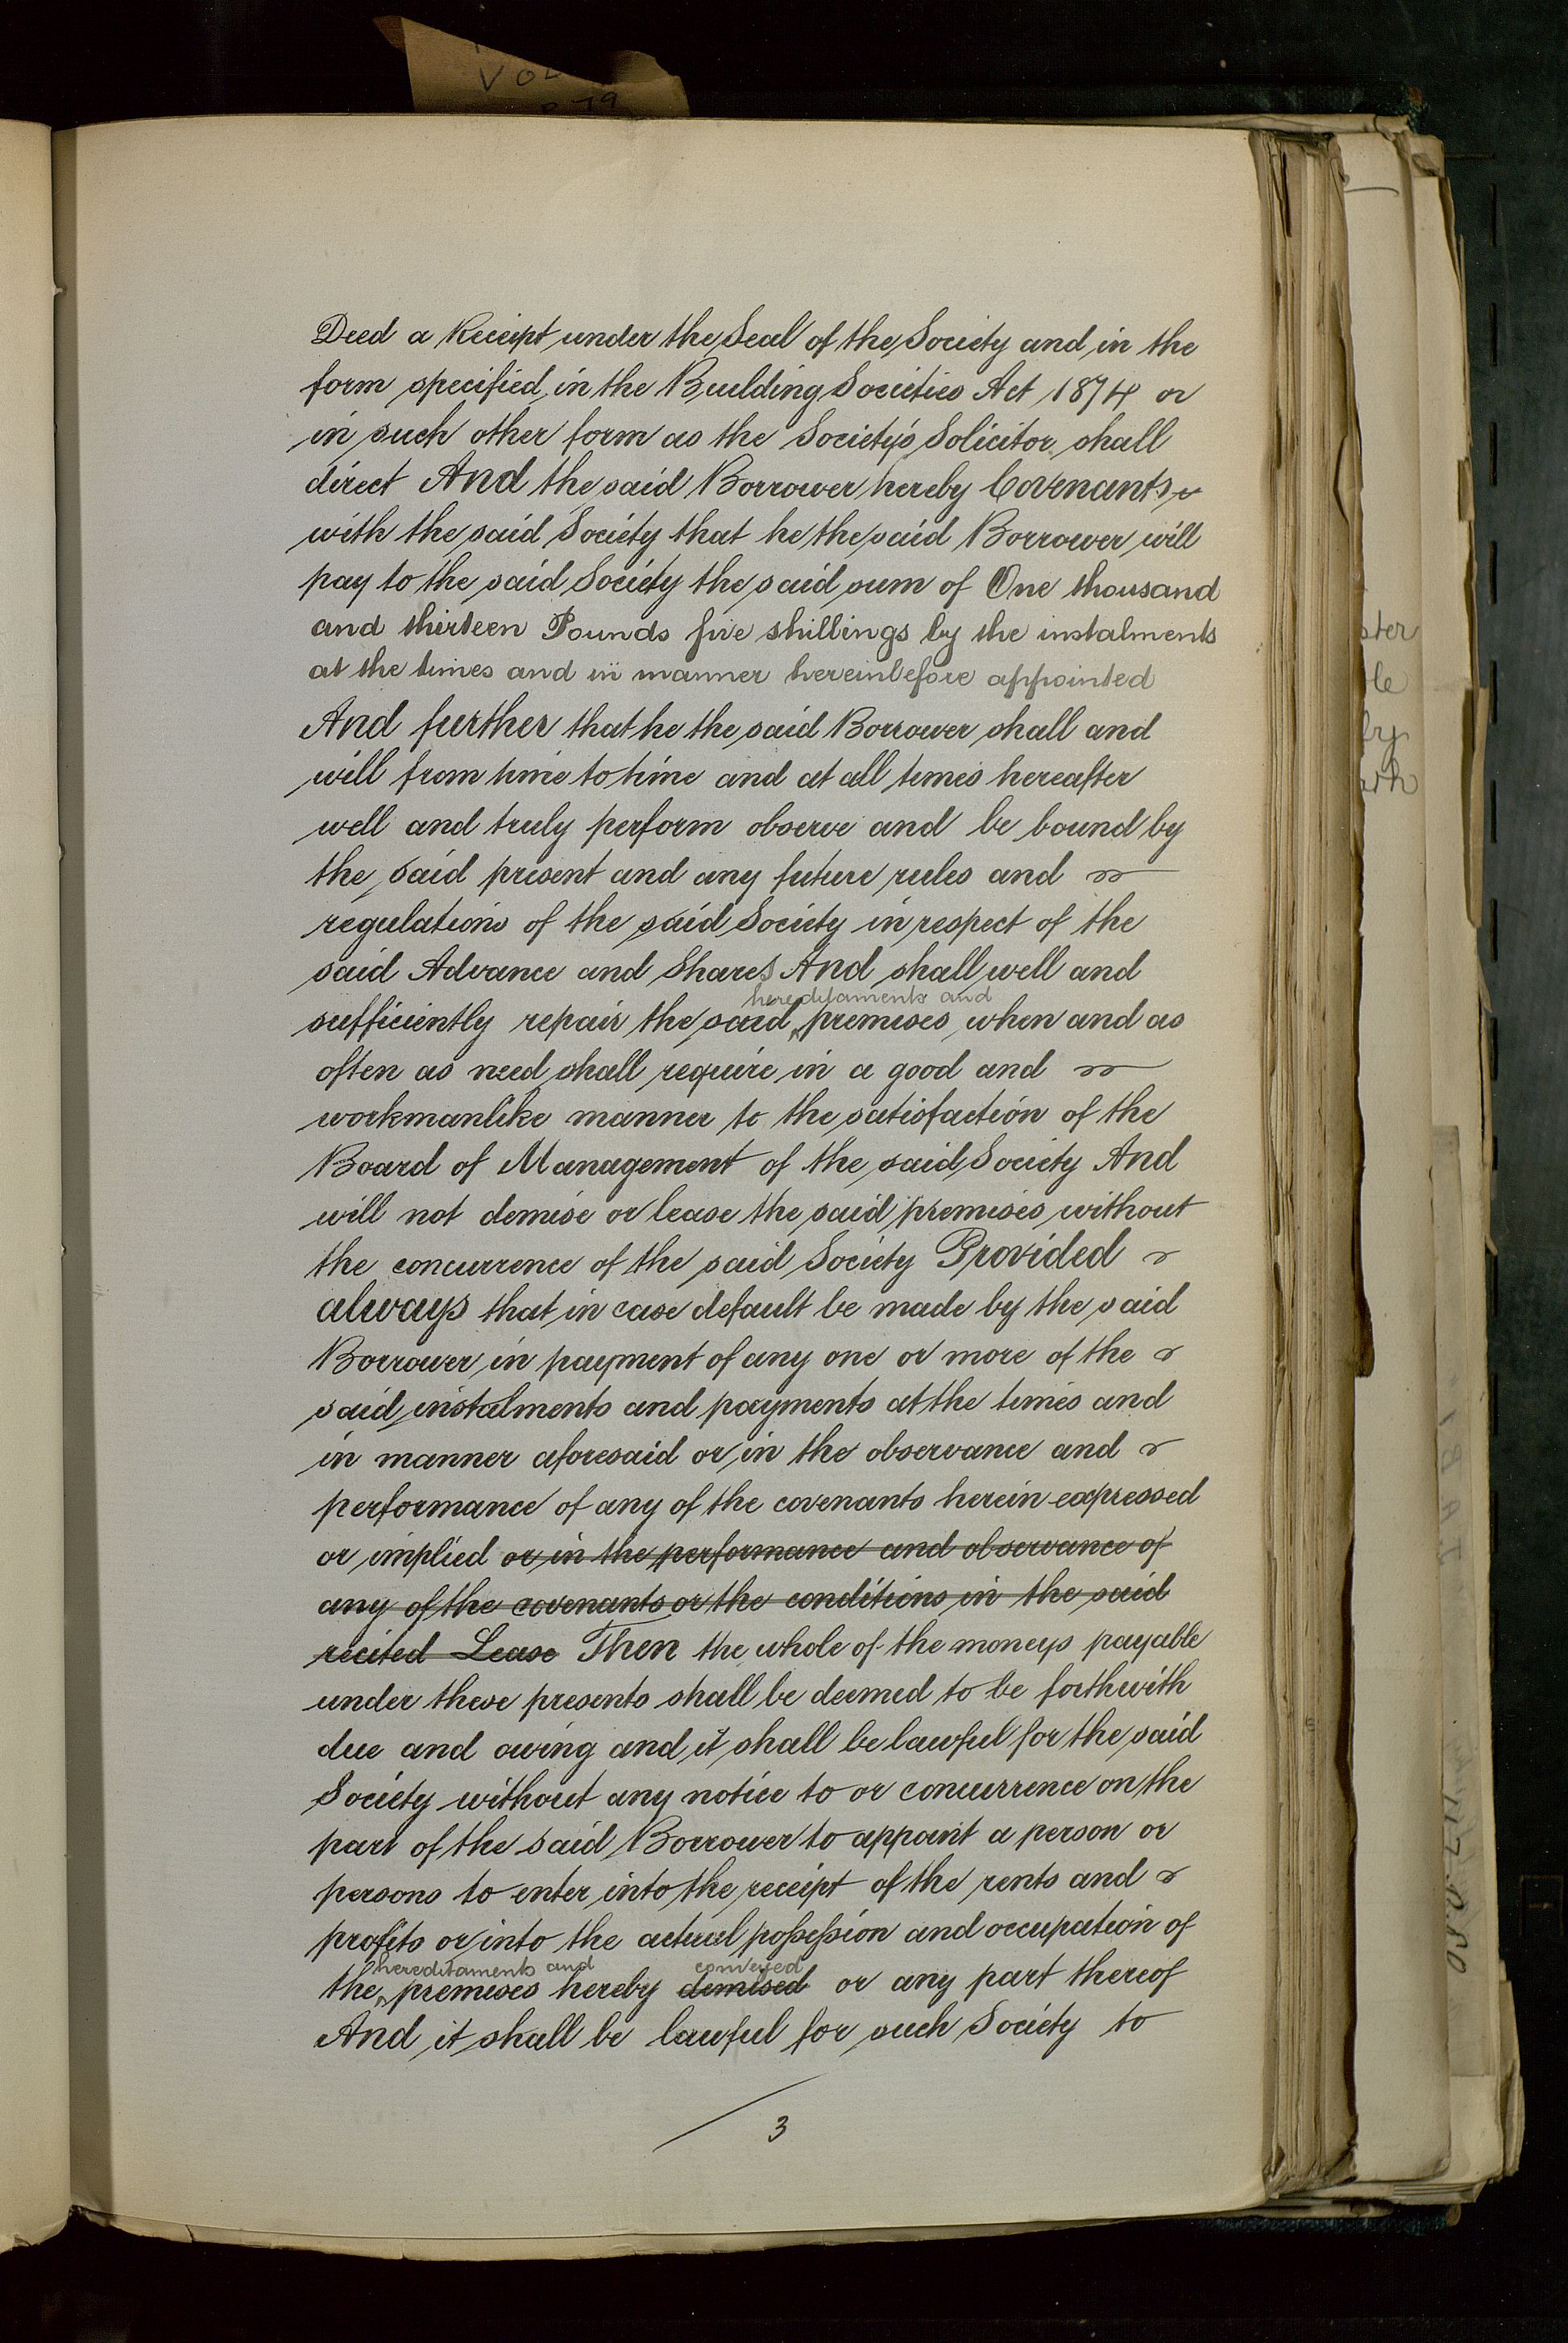 VOL
P 79
Deed a Receipt under the Seal of the Society and in the
form specified in the Building Societies Act 1874 or
in such other form as the Society's Solicitor shall
direct And the said Borrower hereby Covenants
with the said Society that he the said Borrower will
pay to the said Society the said sum of One thousand
and thirteen Pounds five shillings by the instalments
at the times and in manner hereinbefore appointed
And further that he the said Borrower shall and
will from time to time and at all times hereafter
well and truly perform observe and be bound by
the said present and any future rules and
regulations of the said Society in respect of the
said Advance and Shares And shall well and
hereditaments and
sufficiently repair the said premises when and as
often as need shall require in a good and
workmanlike manner to the satisfaction of the
Board of Management of the said Society And
will not demise or lease the said premises without
the concurrence of the said Society Provided
always that in case default be made by the said
Borrower in payment of any one or more of the
said instalments and payments at the times and
in manner aforesaid or in the observance and
performance of any of the covenants herein expressed
or implied or in the performance and observance of
any of the covenants or the conditions in the said
recited Lease Then the whole of the moneys payable
under these presents shall be deemed to be forthwith
due and owing and it shall be lawful for the said
Society without any notice to or concurrence on the
part of the said Borrower to appoint a person or
persons to enter into the receipt of the rents and
profits or into the actual possession and occupation of
hereditaments and conveyed
the premises hereby demised or any part thereof
And it shall be lawful for such Society to
3